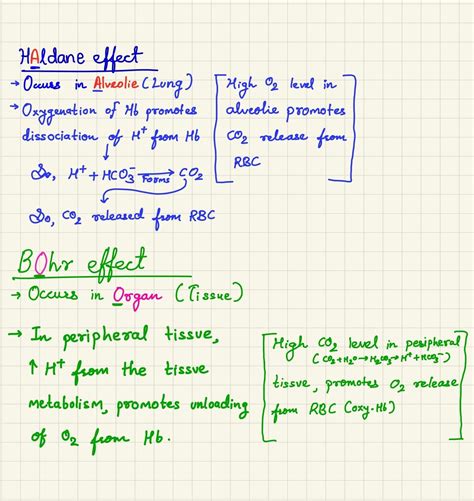 HAldane effect
→ Occurs in Alveolie (Lung)
→ Oxygenation of Hb promotes
dissociation of H⁺ from Hb
↓
So, H⁺ + HCO₃⁻ → CO₂
Forms
So, CO₂ released from RBC
[High O₂ level in
alveolie promotes
CO₂ release from
RBC]
BOhr effect
→ Occurs in Organ (Tissue)
→ In peripheral tissue,
↑ H⁺ from the tissue
metabolism, promotes unloading
of O₂ from Hb.
[High CO₂ level in peripheral
(CO₂+H₂O→H₂CO₃→H⁺+HCO₃⁻)
tissue, promotes O₂ release
from RBC (oxy-Hb)]